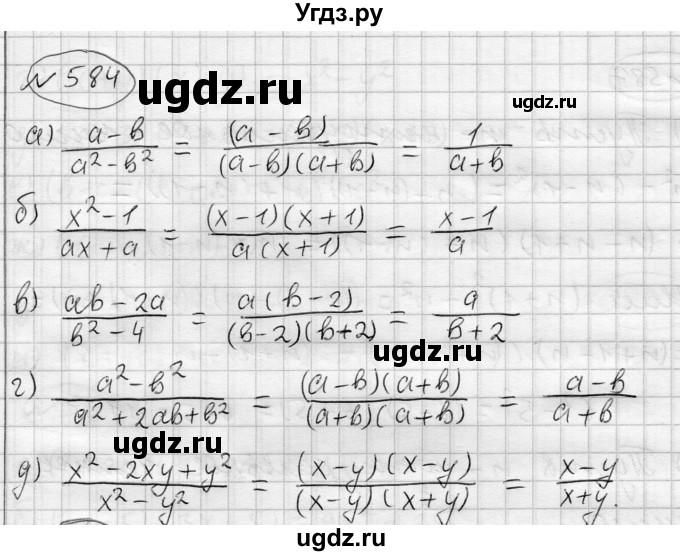 Угдз.ру
№ 584
ugdz.ru
а) (a-b)/(a²-b²) = (a-b)/((a-b)(a+b)) = 1/(a+b)
б) (x²-1)/(ax+a) = ((x-1)(x+1))/(a(x+1)) = (x-1)/a
в) (ab-2a)/(b²-4) = (a(b-2))/((b-2)(b+2)) = a/(b+2)
ugdz.ru
г) (a²-b²)/(a²+2ab+b²) = ((a-b)(a+b))/((a+b)(a+b)) = (a-b)/(a+b)
ugdz.ru
д) (x²-2xy+y²)/(x²-y²) = ((x-y)(x-y))/((x-y)(x+y)) = (x-y)/(x+y).
ugdz.ru